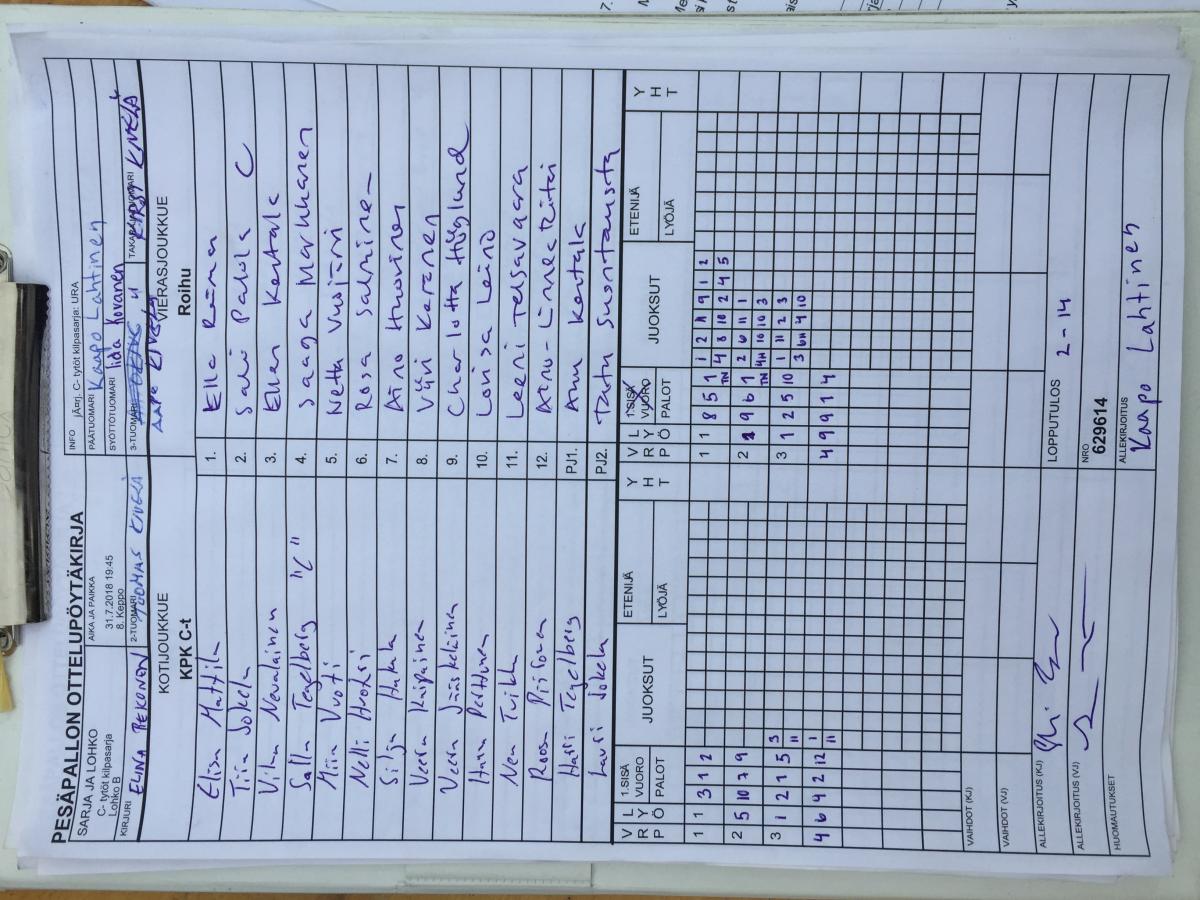 PESÄPALLON OTTELUPÖYTÄKIRJA
SARJA JA LOHKO
C- tytöt kilpasarja
Lohko B
AIKA JA PAIKKA
31.7.2018 19:45
8. Keppo
INFO järj. C- tytöt kilpasarja: URA
PÄÄTUOMARI Kaapo Lahtinen
SYÖTTÖTUOMARI Iida Kovanen
KIRJURI ELINA PEKONEN
2-TUOMARI TUOMAS KIVELÄ
3-TUOMARI AAPO KIVELÄ
TAKARAJATUOMARI KIRSI KIVELÄ
KOTIJOUKKUE
KPK C-t
VIERASJOUKKUE
Roihu
Elisa Mattila 1. Ella Reima
Tiia Jokela 2. Salli Palola C
Vilma Nevalainen 3. Ellen Kentala
Salla Tegelberg "C" 4. Saaga Markkanen
Miia Vuoti 5. Netta Vuojärvi
Nelli Huoksi 6. Rosa Salminen
Silja Hakala 7. Aino Huovinen
Veera Kaipainen 8. Viivi Karanen
Veera Jääskeläinen 9. Charlotta Höglund
Hanna Perttunen 10. Loviisa Leino
Nea Tuikka 11. Leeni Teisavaara
Roosa Piisonen 12. Aino-Linnea Ritai
Harri Tegelberg PJ1. Anu Kentala
Lauri Jokela PJ2. Tatu Suontausta
V L
R Y
P Ö
1.SISÄ
VUORO
PALOT
JUOKSUT
ETENIJÄ
LYÖJÄ
Y
H
T
V L
R Y
P Ö
1.SISÄ
VUORO
PALOT
JUOKSUT
ETENIJÄ
LYÖJÄ
Y
H
T
1 1 3 1 2
1 1 8 5 1 1 2 11 9 1 2
TN 4 8 10 2 4 5
2 5 10 7 9
2 1 9 6 1 2 6 11 1
TN 4H 10 10 3
3 1 2 1 5 3
11
3 1 2 5 10 1 11 2 3
3 6H 4 10
4 6 4 2 12 1
11
4 9 9 1 4
VAIHDOT (KJ)
VAIHDOT (VJ)
ALLEKIRJOITUS (KJ)
LOPPUTULOS 2-14
ALLEKIRJOITUS (VJ)
NRO
629614
HUOMAUTUKSET
ALLEKIRJOITUS
Kaapo Lahtinen